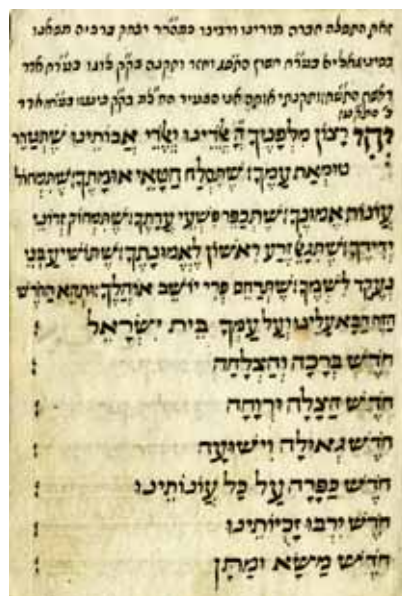 זאת התפלה חברה מורינו ורבינו כמהר״ר יצחק ברכיה מפאנו
בסיניגאליא בשנת חשון
ראשון ותקנתי אותה אני הצעיר
יהי רצון מלפניך ה׳ אלדינו ואלדי אבותינו שתטהר
טומאת עמך: שתסלח חטאי אומתך: שתמחול
עונות אמונך: שתכפר פשעי עדתך: שתמחוק זדוני
ידידך: שתגאל זרע ראשון לאמונתך: שתושיע בני
נעקד לשמך: שתרחם פרי יושב אוהלך: ותהא החדש
הזה הבא עלינו ועל עמך בית ישראל
חדש ברכה והצלחה
חדש הצלה ורוחה
חדש גאולה וישועה
חדש כפרה על כל עונותינו
חדש ירבו זכיותינו
חדש משא ומתן